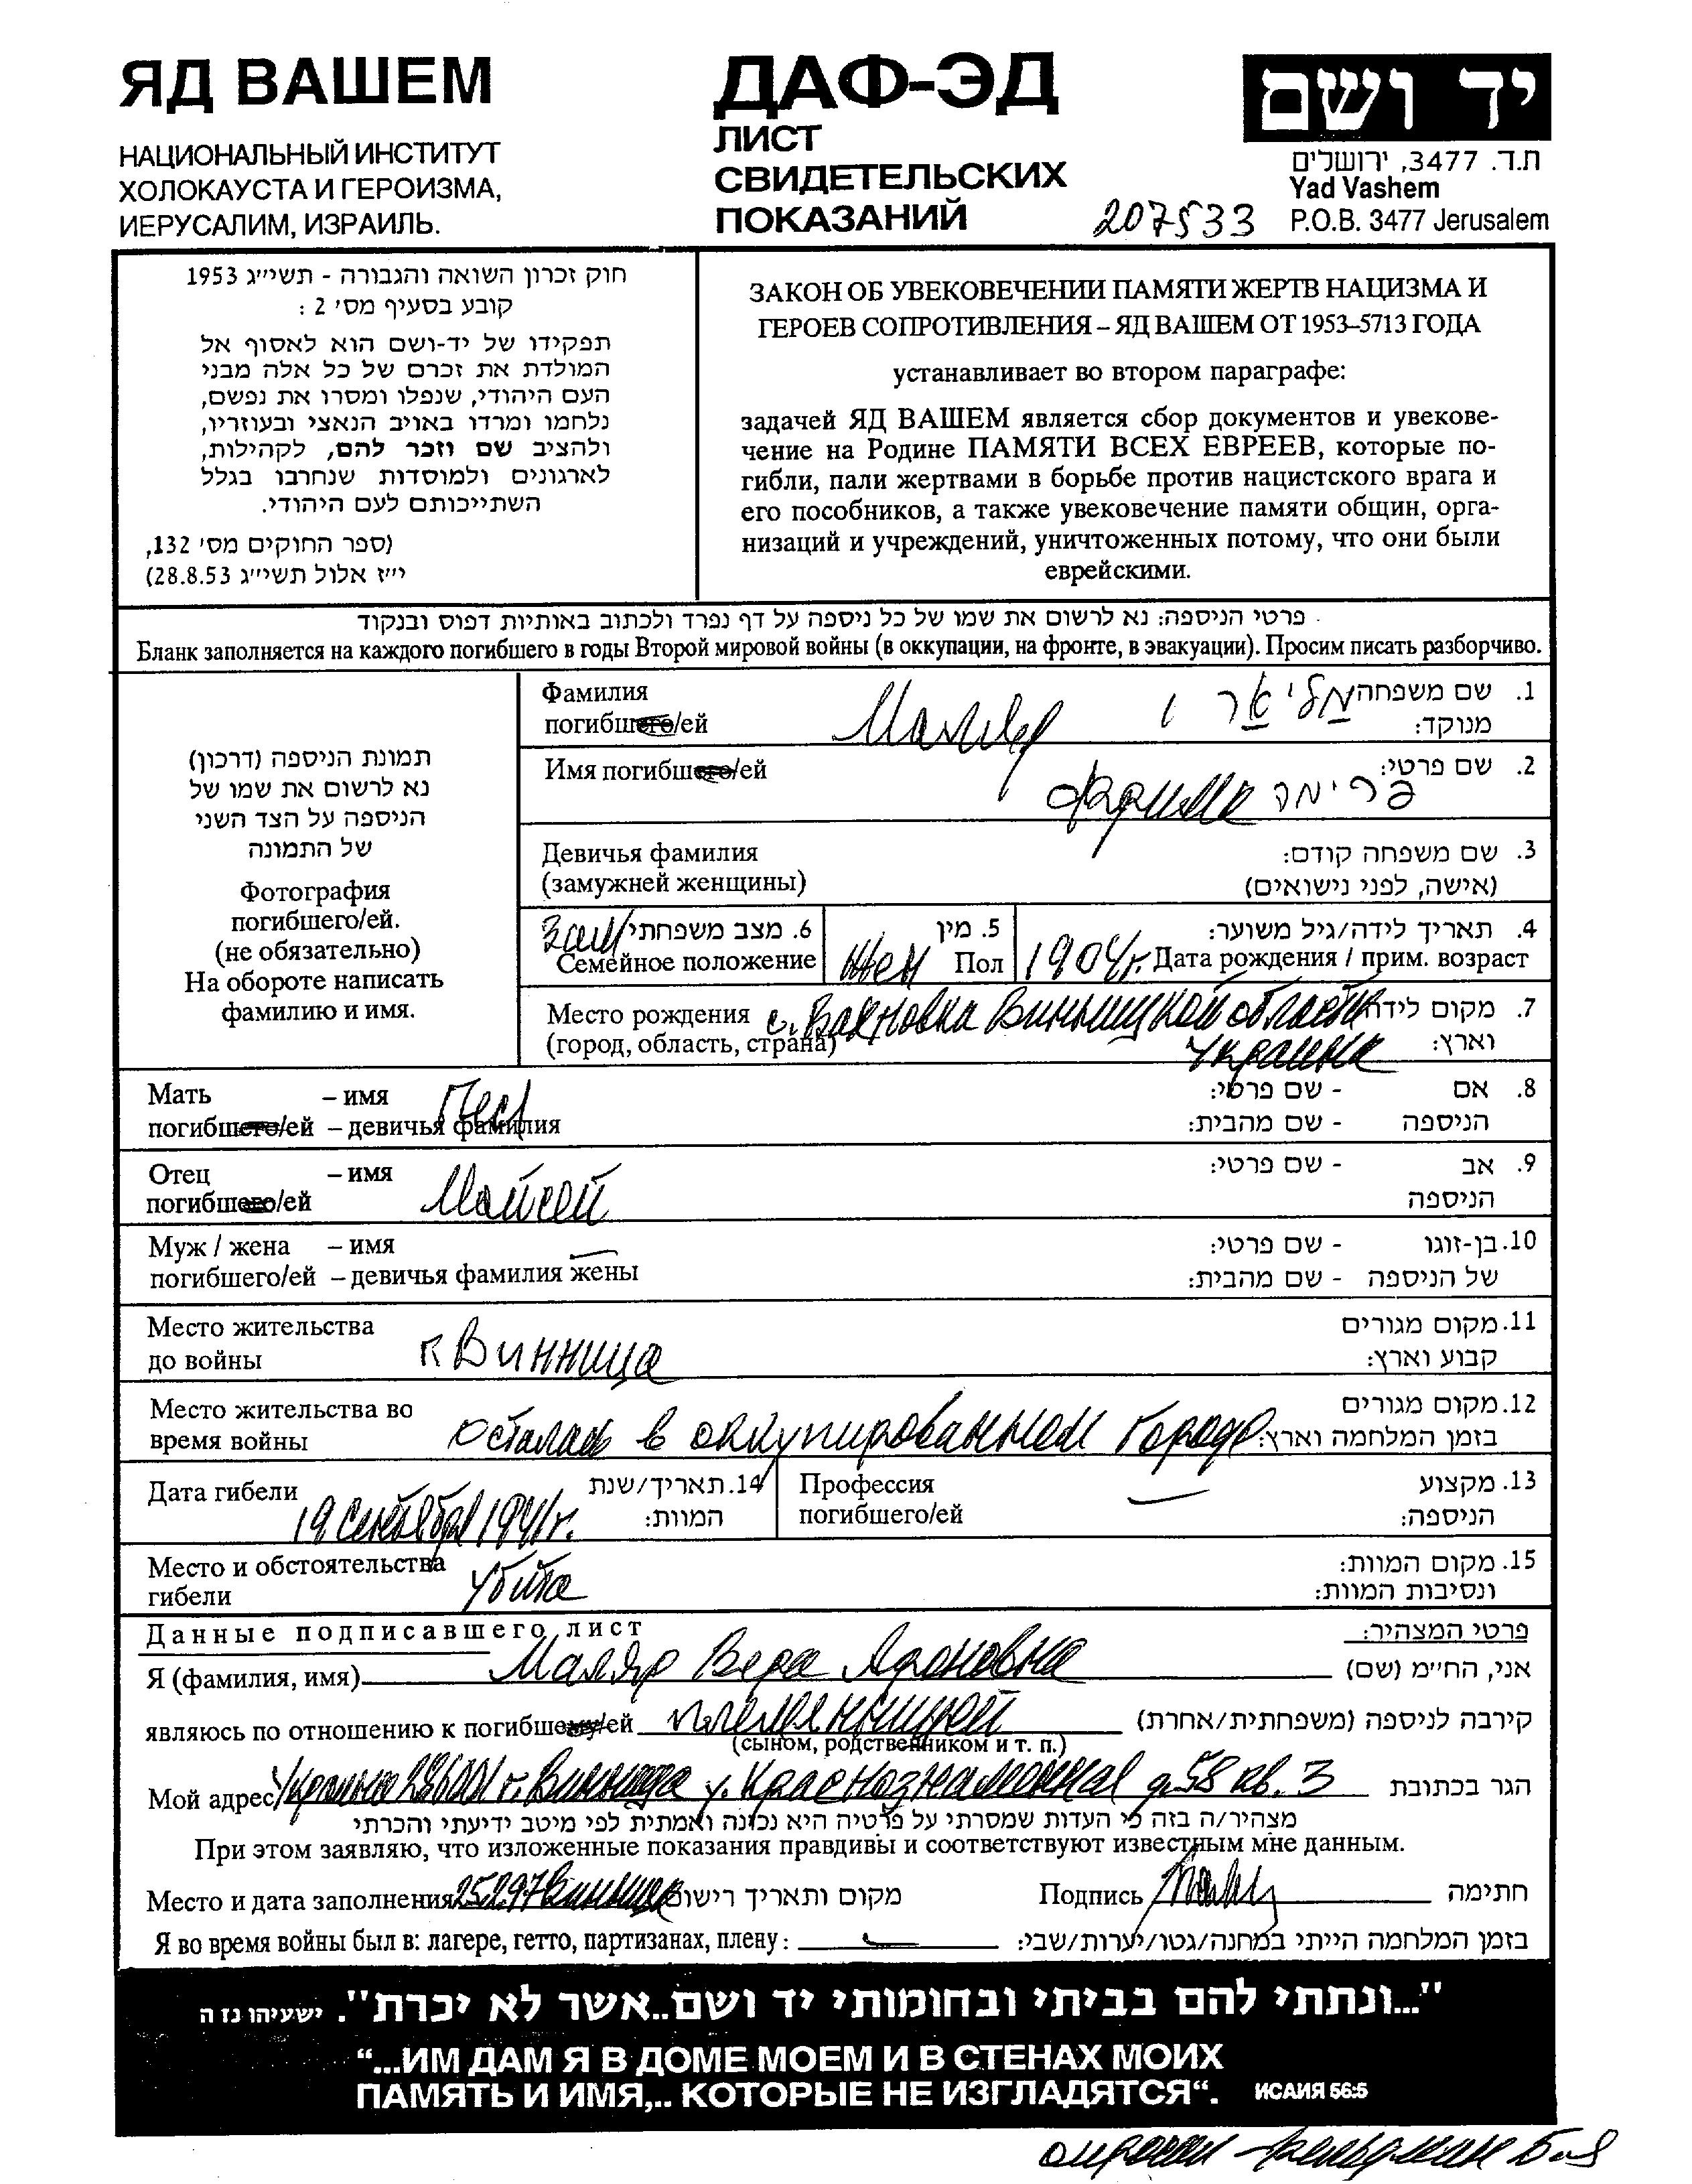 ЯД ВАШЕМ
НАЦИОНАЛЬНЫЙ ИНСТИТУТ
ХОЛОКАУСТА И ГЕРОИЗМА,
ИЕРУСАЛИМ, ИЗРАИЛЬ.
ДАФ-ЭД
ЛИСТ
СВИДЕТЕЛЬСКИХ
ПОКАЗАНИЙ
207533
יד ושם
ת.ד. 3477, ירושלים
Yad Vashem
P.O.B. 3477 Jerusalem
חוק זכרון השואה והגבורה - תשי״ג 1953
קובע בסעיף מס׳ 2 :
תפקידו של יד-ושם הוא לאסוף אל
המולדת את זכרם של כל אלה מבני
העם היהודי, שנפלו ומסרו את נפשם,
נלחמו ומרדו באויב הנאצי ובעוזריו,
ולהציב שם וזכר להם, לקהילות,
לארגונים ולמוסדות שנחרבו בגלל
השתייכותם לעם היהודי.
(ספר החוקים מס׳ 132,
י״ז אלול תשי״ג 28.8.53)
ЗАКОН ОБ УВЕКОВЕЧЕНИИ ПАМЯТИ ЖЕРТВ НАЦИЗМА И
ГЕРОЕВ СОПРОТИВЛЕНИЯ – ЯД ВАШЕМ ОТ 1953–5713 ГОДА
устанавливает во втором параграфе:
задачей ЯД ВАШЕМ является сбор документов и увекове-
чение на Родине ПАМЯТИ ВСЕХ ЕВРЕЕВ, которые по-
гибли, пали жертвами в борьбе против нацистского врага и
его пособников, а также увековечение памяти общин, орга-
низаций и учреждений, уничтоженных потому, что они были
еврейскими.
פרטי הניספה: נא לרשום את שמו של כל ניספה על דף נפרד ולכתוב באותיות דפוס ובנקוד
Бланк заполняется на каждого погибшего в годы Второй мировой войны (в оккупации, на фронте, в эвакуации). Просим писать разборчиво.
תמונת הניספה (דרכון)
נא לרשום את שמו של
הניספה על הצד השני
של התמונה
Фотография
погибшего/ей.
(не обязательно)
На обороте написать
фамилию и имя.
Фамилия 1. שם משפחה
погибшего/ей Маляр מליאר מנוקד:
Имя погибшего/ей 2. שם פרטי:
Фарима פרימה
Девичья фамилия 3. שם משפחה קודם:
(замужней женщины) (אישה, לפני נישואים)
Зам 6. מצב משפחתי 5. מין 4. תאריך לידה/גיל משוער:
Семейное положение жен Пол 1904г. Дата рождения / прим. возраст
Место рождения с. Вахновка Винницкой области 7. מקום לידה
(город, область, страна) Украина וארץ:
Мать – имя Песя 8. אם - שם פרטי:
погибшего/ей – девичья фамилия הניספה - שם מהבית:
Отец – имя 9. אב - שם פרטי:
погибшего/ей Мойсей הניספה
Муж / жена – имя 10. בן-זוגו - שם פרטי:
погибшего/ей – девичья фамилия жены של הניספה - שם מהבית:
Место жительства 11. מקום מגורים
до войны г Винница קבוע וארץ:
Место жительства во 12. מקום מגורים
время войны осталась в оккупированном городе בזמן המלחמה וארץ:
Дата гибели 14. תאריך/שנת Профессия 13. מקצוע
19 сентября 1941г. המוות: погибшего/ей הניספה:
Место и обстоятельства 15. מקום המוות:
гибели убита ונסיבות המוות:
Данные подписавшего лист פרטי המצהיר:
Я (фамилия, имя) Маляр Вера Ароновна אני, הח״מ (שם)
являюсь по отношению к погибшему/ей племянницей קירבה לניספה (משפחתית/אחרת)
(сыном, родственником и т. п.)
Мой адрес Украина 286001 г. Винница у. Краснознаменная д.58 кв. 3 הגר בכתובת
מצהיר/ה בזה כי העדות שמסרתי על פרטיה היא נכונה ואמתית לפי מיטב ידיעתי והכרתי
При этом заявляю, что изложенные показания правдивы и соответствуют известным мне данным.
Место и дата заполнения Винница מקום ותאריך רישום Подпись חתימה
Я во время войны был в: лагере, гетто, партизанах, плену: בזמן המלחמה הייתי במחנה/גטו/יערות/שבי:
"...ונתתי להם בביתי ובחומותי יד ושם..אשר לא יכרת". ישעיהו נז ה
“...ИМ ДАМ Я В ДОМЕ МОЕМ И В СТЕНАХ МОИХ
ПАМЯТЬ И ИМЯ,.. КОТОРЫЕ НЕ ИЗГЛАДЯТСЯ“. ИСАИЯ 56:5